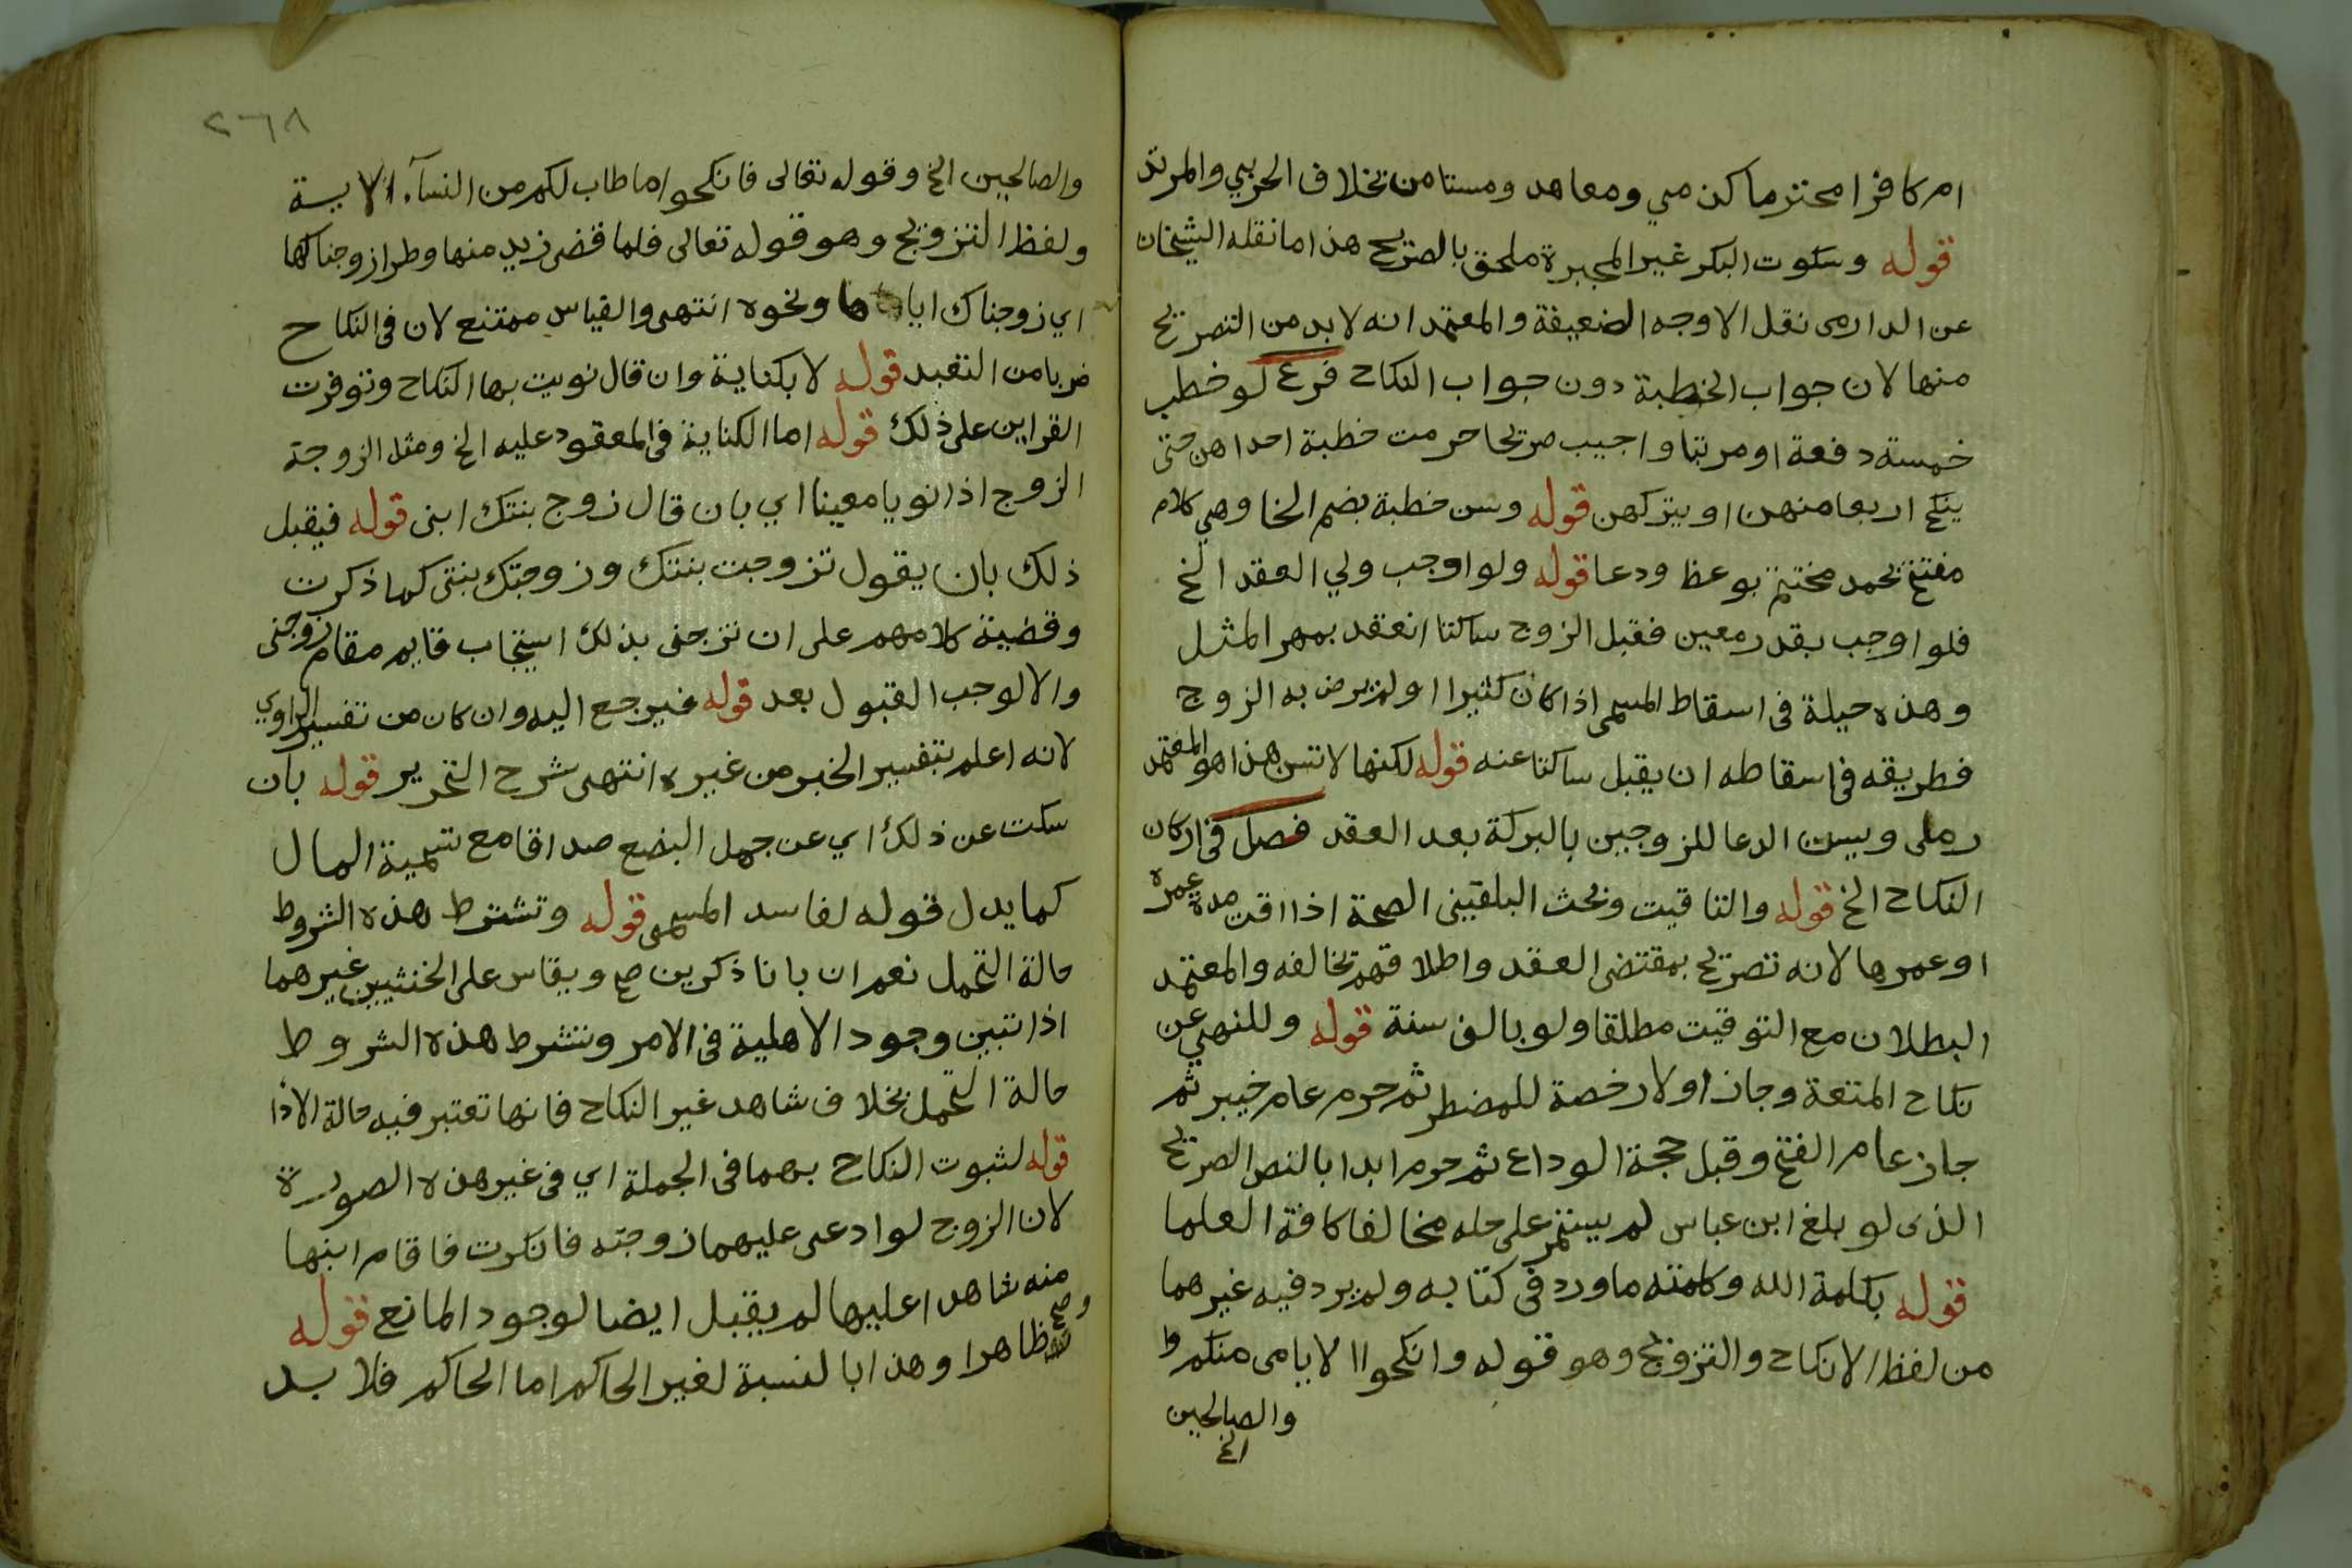 ام كافرا محترما كذمي ومعاهد ومستامن بخلاف الحربي والمرتد
قوله وسكوت البكر غير المجبرة ملحق بالصريح هذا ما نقله الشيخان
عن الدارمى نقل الاوجه الضعيفة والمعتمد انه لابد من التصريح
منها لان جواب الخطبة دون جواب النكاح فرع لو خطب
خمسة دفعة او مرتبا واجيب صريحا حرمت خطبة احداهن حتى
ينكح اربعا منهن او يتركهن قوله وسن خطبة بضم الخا وهي كلام
مفتتح بحمد مختتم بوعظ ودعا قوله ولو اوجب ولي العقد الخ
فلو اوجب بقدر معين فقبل الزوج ساكتا انعقد بمهر المثل
وهذه حيلة فى اسقاط المسمى اذا كان كثيرا او لم يرض به الزوج
فطريقه فى اسقاطه ان يقبل ساكتا عنه قوله لكنها لا تسن هذا هو المعتمد
رملى ويسن الدعا للزوجين بالبركة بعد العقد فصل فى اركان
النكاح الخ قوله والتاقيت وبحث البلقينى الصحة اذا اقت مدة عمره
او عمرها لانه تصريح بمقتضى العقد واطلاقهم يخالفه والمعتمد
البطلان مع التوقيت مطلقا ولو بالف سنة قوله وللنهي عن
نكاح المتعة وجاز اولا رخصة للمضطر ثم حرم عام خيبر ثم
جاز عام الفتح وقبل حجة الوداع ثم حرم ابدا بالنص الصريح
الذى لو بلغ ابن عباس لم يستمر على حله مخالفا كافة العلما
قوله بكلمة الله وكلمته ماورد فى كتابه ولم يرد فيه غيرهما
من لفظ الانكاح والتزويج وهو قوله وانكحوا الايامى منكم وا
والصالحين
الخ
٢٦٨
والصالحين الخ وقوله تعالى فانكحوا ما طاب لكم من النسآء الاية
ولفظ التزويج وهو قوله تعالى فلما قضى زيد منها وطرا زوجناكها
اي زوجناك اياها ونحوه انتهى والقياس ممتنع لان فى النكاح
ضربا من التعبد قوله لا بكناية وان قال نويت بها النكاح وتوفرت
القراين على ذلك قوله اما الكناية فى المعقود عليه الخ ومثل الزوجة
الزوج اذا نويا معينا اي بان قال زوج بنتك ابنى قوله فيقبل
ذلك بان يقول تزوجت بنتك وزوجتك بنتى كما ذكرت
وقضية كلامهم على ان تزجنى بذلك استيجاب قايم مقام زوجنى
والا لوجب القبول بعد قوله فيرجع اليه وان كان من تفسير الراوي
لانه اعلم بتفسير الخبر من غيره انتهى شرح التحرير قوله بان
سكت عن ذلك اي عن جهل البضع صداقا مع تسمية المال
كما يدل قوله لفاسد المسمى قوله وتشترط هذه الشروط
حالة التحمل نعم ان بانا ذكرين صح ويقاس على الخنثيين غيرهما
اذا تبين وجود الاهلية فى الامر وتشرط هذه الشروط
حالة التحمل بخلاف شاهد غير النكاح فانها تعتبر فيه حالة الادا
قوله لثبوت النكاح بهما فى الجملة اي فى غير هذه الصورة
لان الزوج لو ادعى عليهما زوجته فانكرت فاقام ابنها
منه شاهدا عليها لم يقبل ايضا لوجود المانع قوله
وصح ظاهرا وهذا بالنسبة لغير الحاكم اما الحاكم فلا بد